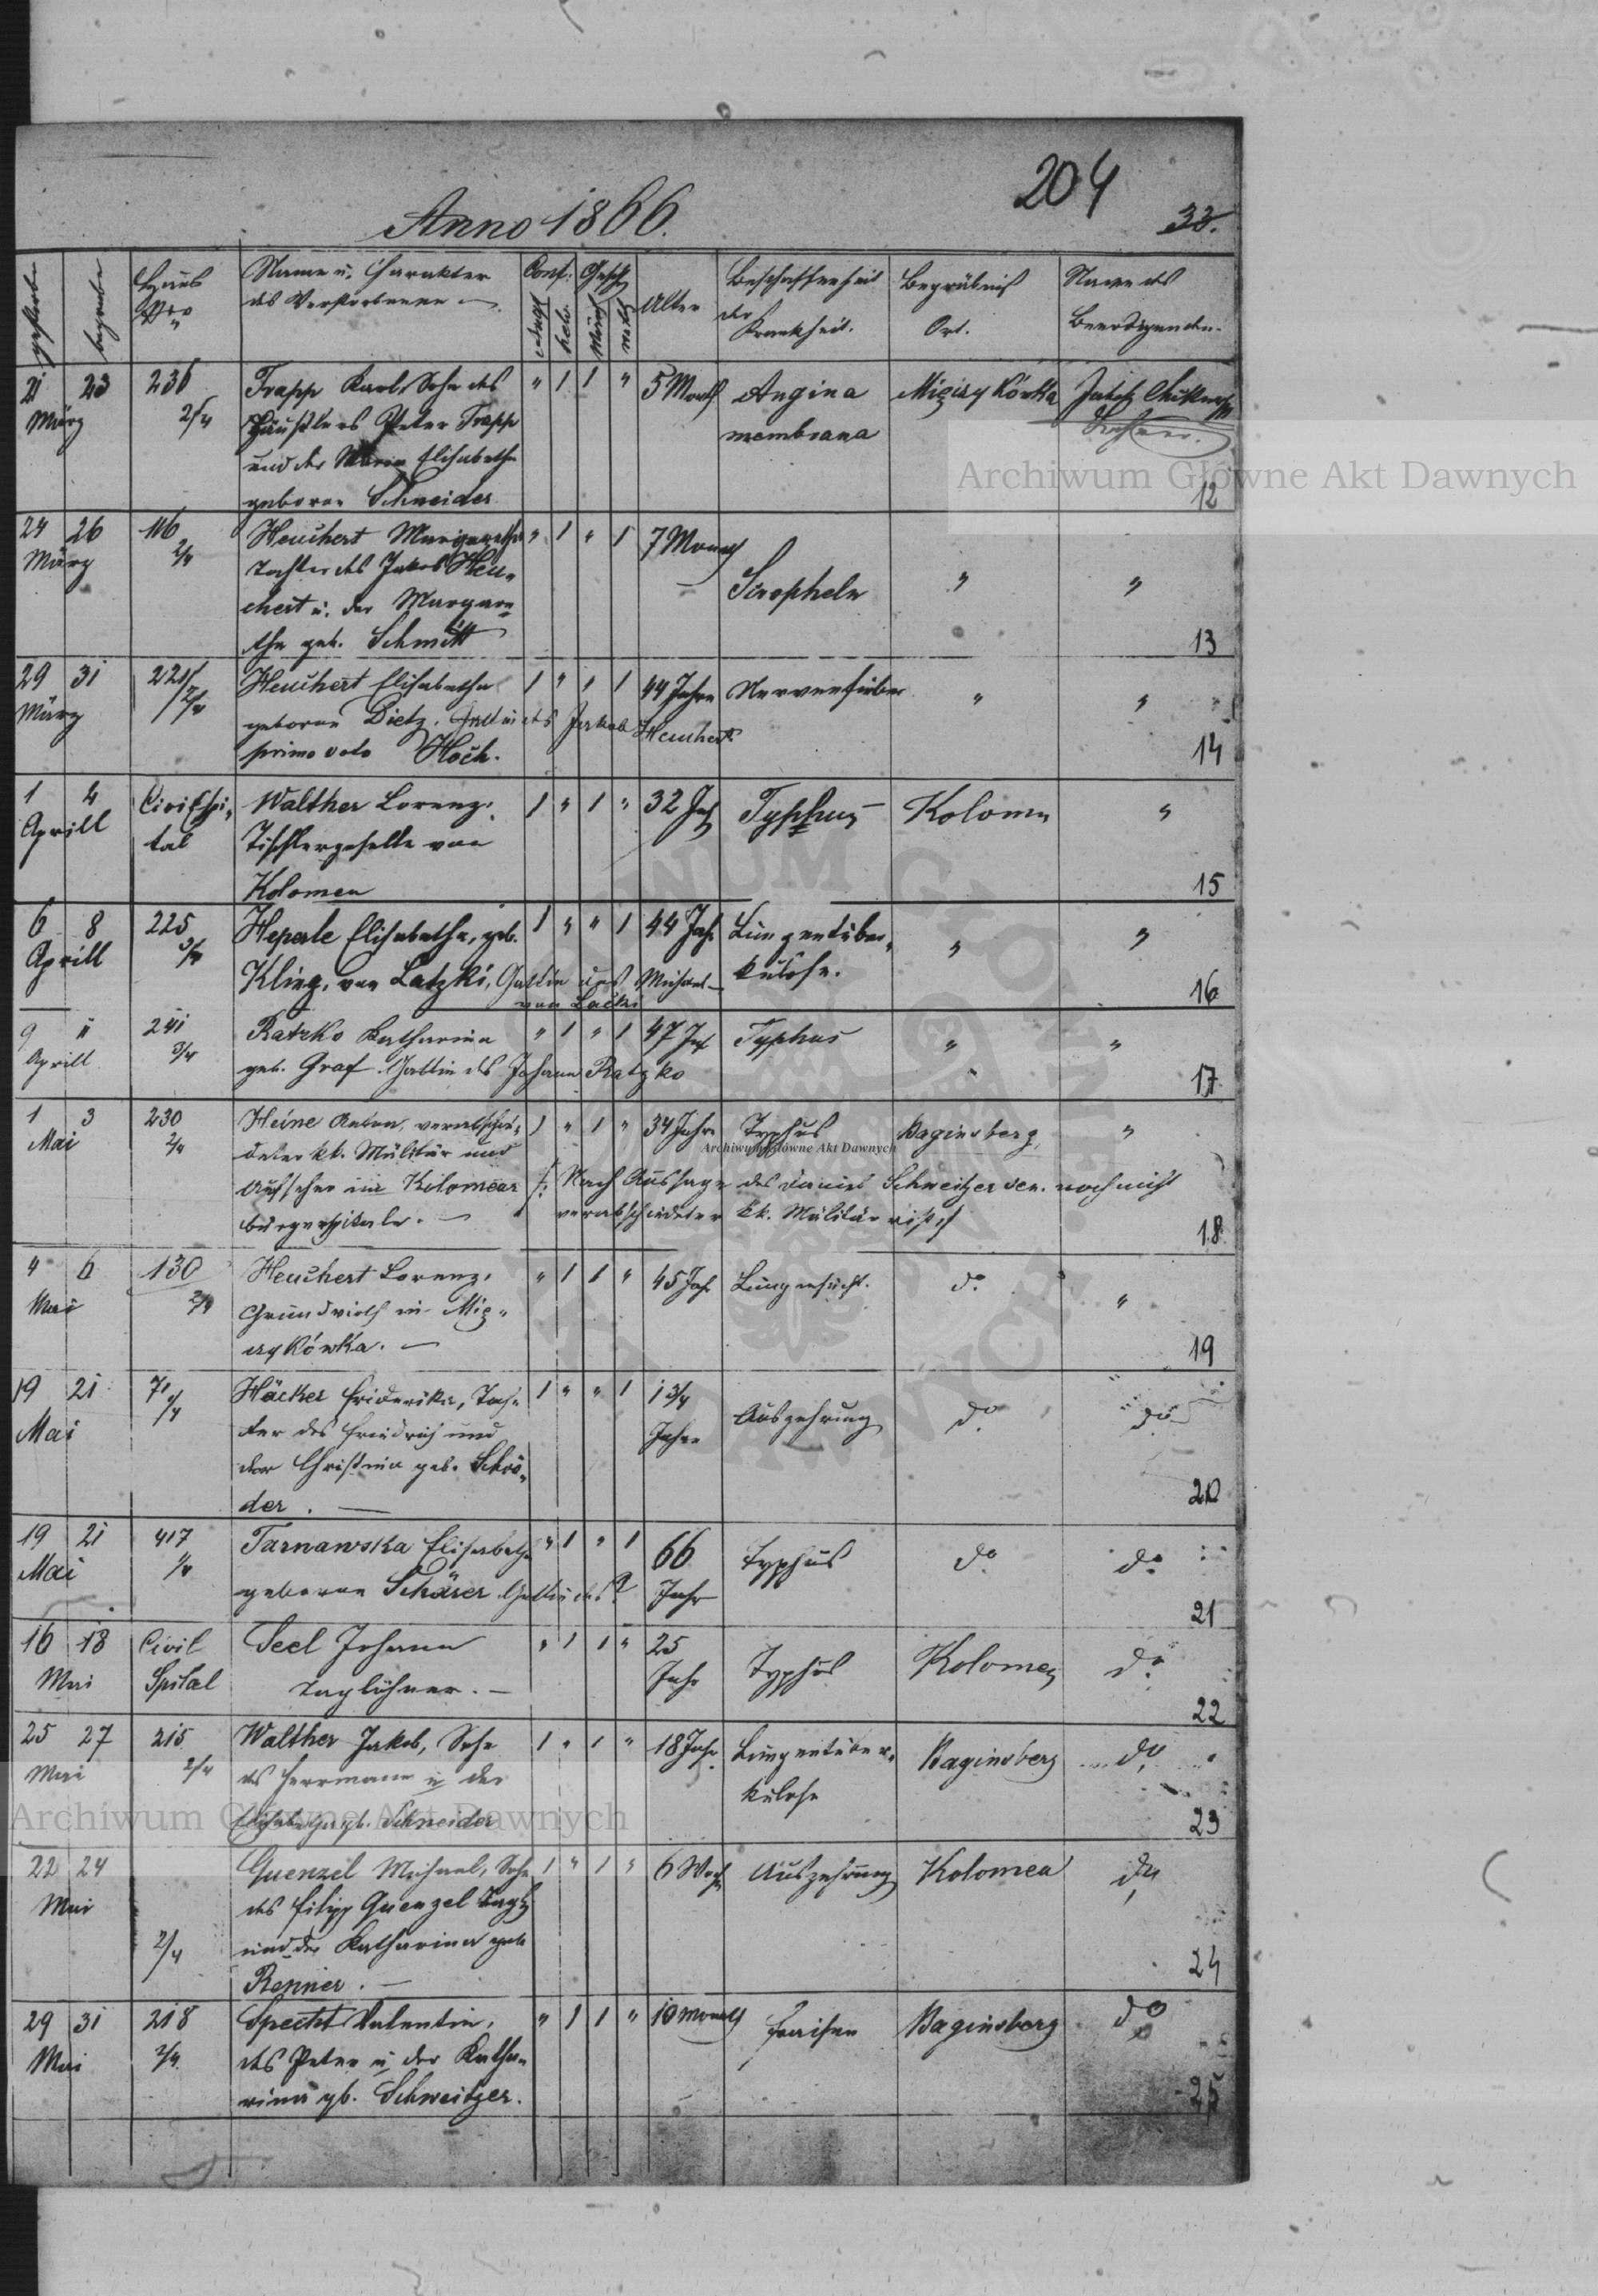 204
Anno 1866.
33.
gestorben
begraben
Haus Nro
Name u. Charakter des Verstorbenen
Conf:
Augsb
helv.
Geschl
Männl
weibl
Alter
Beschaffenheit der Krankheit.
Begräbniß Ort.
Name des Beerdigenden.
21 23 März 236 2/4
Trapp Karl, Sohn des
Häuslers Peter Trapp
und der Maria Elisabetha
geborne Schneider
" 1 1 "
5 Month
Angina
membrana
Mizisykówka
Jakob
12
24 26 März 116 2/4
Heuchert Margaretha
Tochter des Jakob Heu-
chert u. der Margare-
tha geb. Schmitt
" 1 " 1
7 Monath
Scropheln
" "
13
29 31 März 221 2/4
Heuchert Elisabetha
geborne Dietz. Gattin des Jakob Heuchert
primo voto Hoch.
1 " " 1
44 Jahre
Nervenfieber
" "
14
1 4 Aprill Civilspi-
tal
Walther Lorenz,
Tischlergeselle von
Kolomea
1 " 1 "
32 Jah
Typhus
Kolomea
"
15
6 8 Aprill 225 3/4
Heperle Elisabetha, geb.
Kling, von Latzki, Gattin des Michael
von Lacki
1 " " 1
44 Jah
Lungentuber-
kulose.
" "
16
9 11 Aprill 241 3/4
Ratzko Katharina
geb. Graf. Gattin des Johann Ratzko
" 1 " 1
47 Jah
Typhus
" "
17
1 3 Mai 230 2/4
Heine Anton, verabschie-
deter kk. Militär und
Aufseher im Kolomear
bürgerspitale.
1 " 1 "
34 Jahre
Typhus
Baginsberg
"
/: Nach Aussage des Daniel Schweitzer sen. noch nicht
verabschiedeter kk. Militär
18
4 6 Mai 130 2/4
Heuchert Lorenz,
Grundwirth in Miz-
ezykówka.
" 1 1 "
45 Jah
Lungensucht.
do
"
19
19 21 Mai 71 1/4
Häcker Friderika, Toch-
ter des Friedrich und
der Christina geb. Schrö-
der.
1 " " 1
1 3/4
Jahre
Auszehrung
do
do
20
19 21 Mai 417 1/4
Tarnawska Elisabetha
geborne Schärer Gattin des ?
" 1 " 1
66
Jahr
Typhus
do
do
21
16 18 Mai Civil
Spital
Seel Johann
Taglöhner.
" 1 1 "
25
Jahr
Typhus
Kolomea
do
22
25 27 Mai 215 2/4
Walther Jakob, Sohn
des Herrmann u der
Elisabetha gb. Schneider
1 " 1 "
18 Jahr
Lungentuber-
kulose
Baginsberg
do
23
22 24 Mai 2/4
Guenzel Michael, Sohn
des Filipp Guenzel Tagl
und der Katharina geb
Renner.
1 " 1 "
6 Woch
Auszehrung
Kolomea
do
24
29 31 Mai 218 2/4
Specht Valentin,
des Peter u der Katha-
rina gb. Schweitzer.
" 1 1 "
10 Monath
Fraisen
Baginsberg
do
25
Archiwum Główne Akt Dawnych
Archiwum Główne Akt Dawnych
Archiwum Główne Akt Dawnych